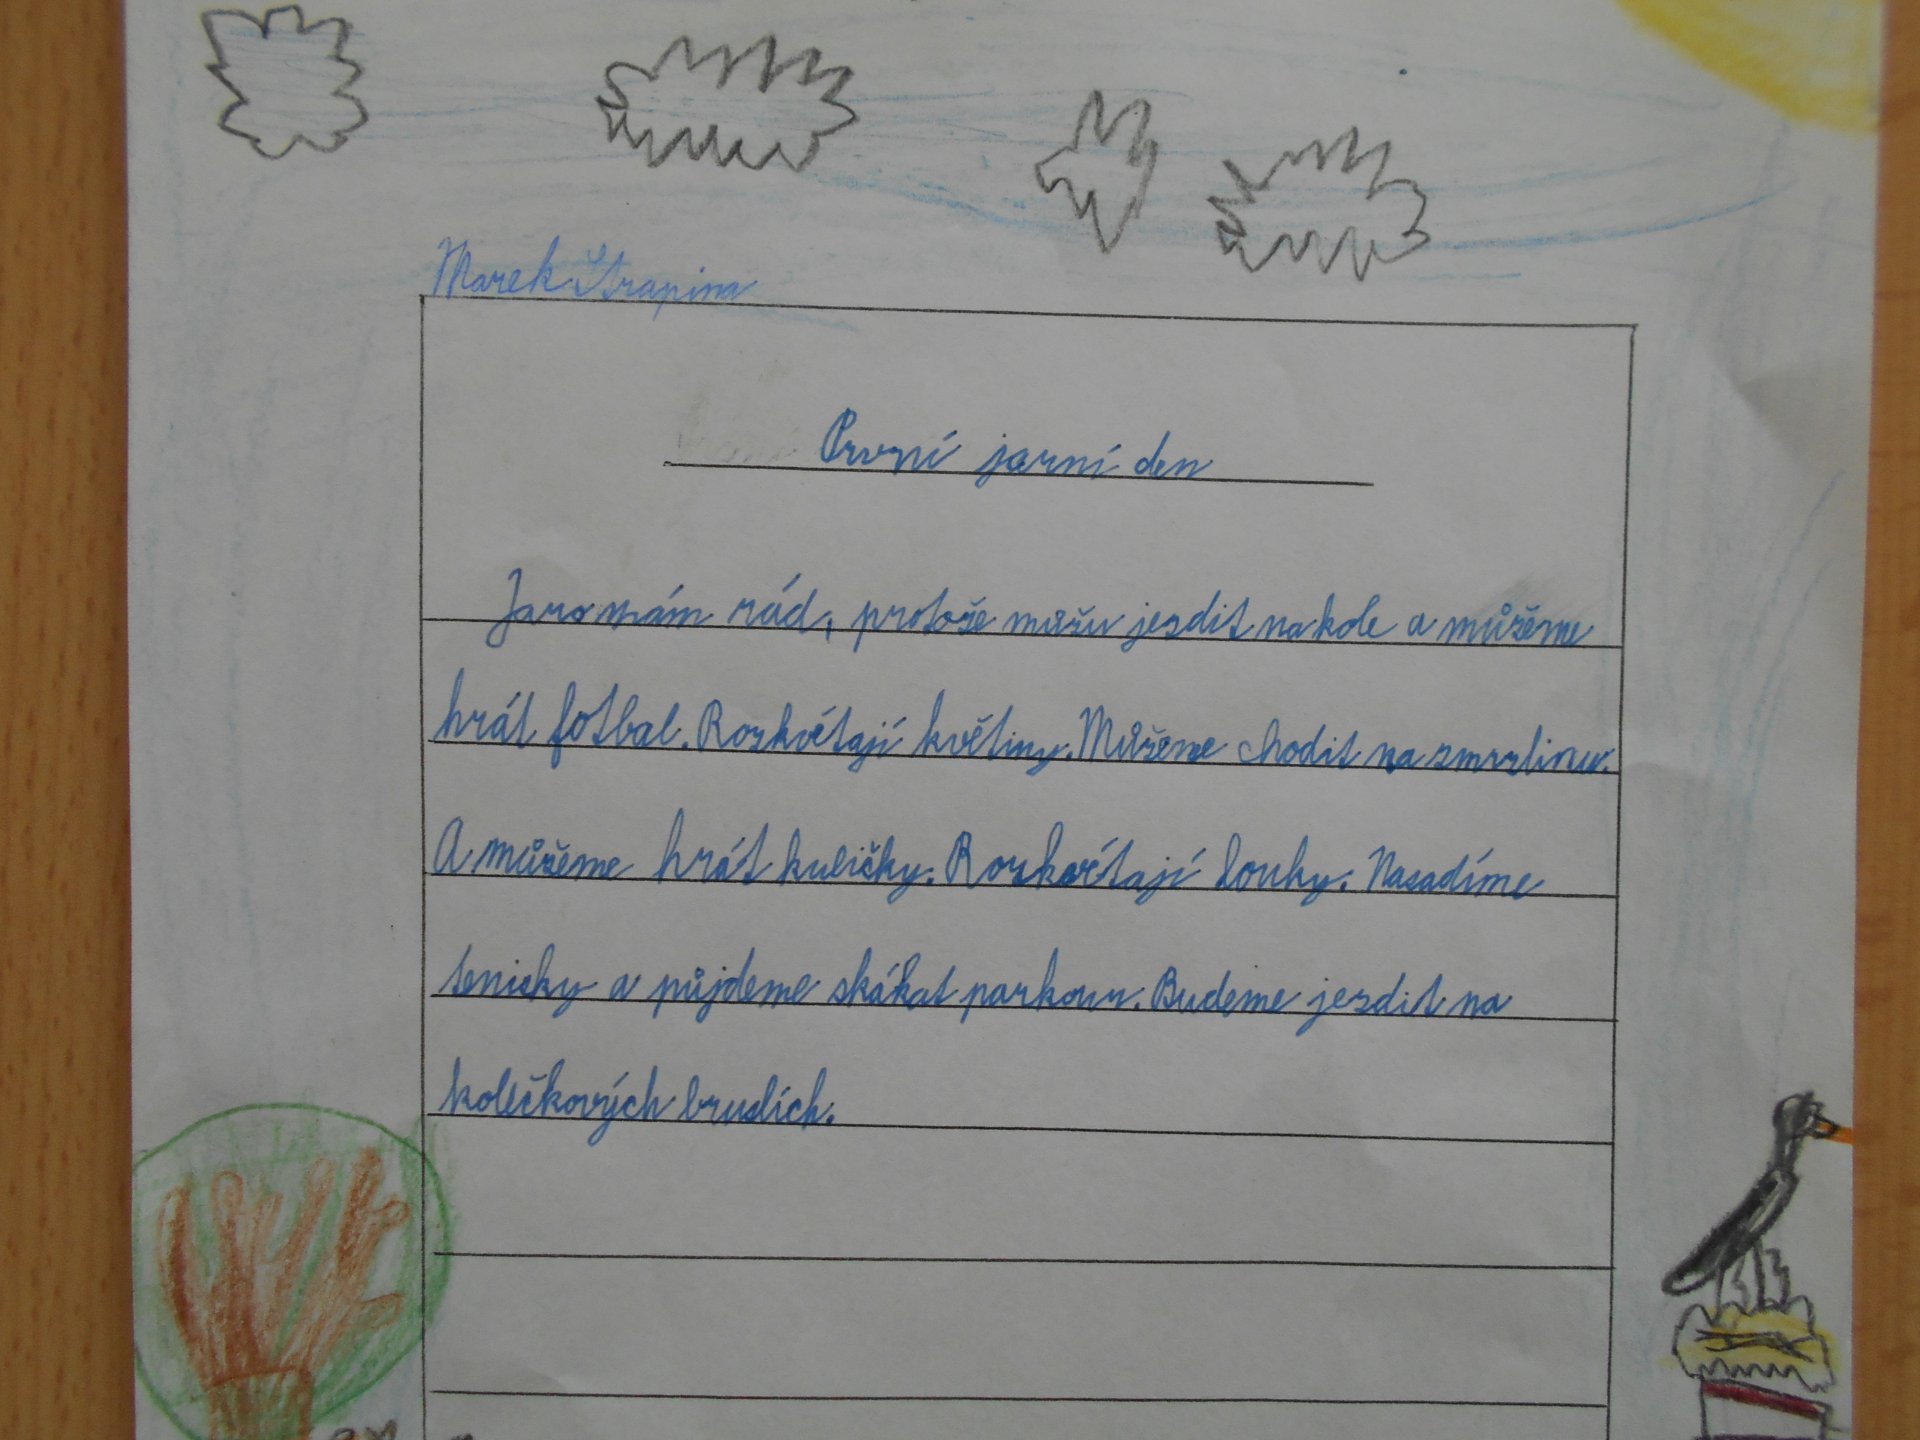 Marek Strapina
První jarní den
Jaro mám rád, protože můžu jezdit na kole a můžeme
hrát fotbal. Rozkvétají květiny. Můžeme chodit na zmrzlinu.
A můžeme hrát kuličky. Rozkvétají louky. Nasadíme
tenisky a půjdeme skákat parkour. Budeme jezdit na
kolečkových bruslích.